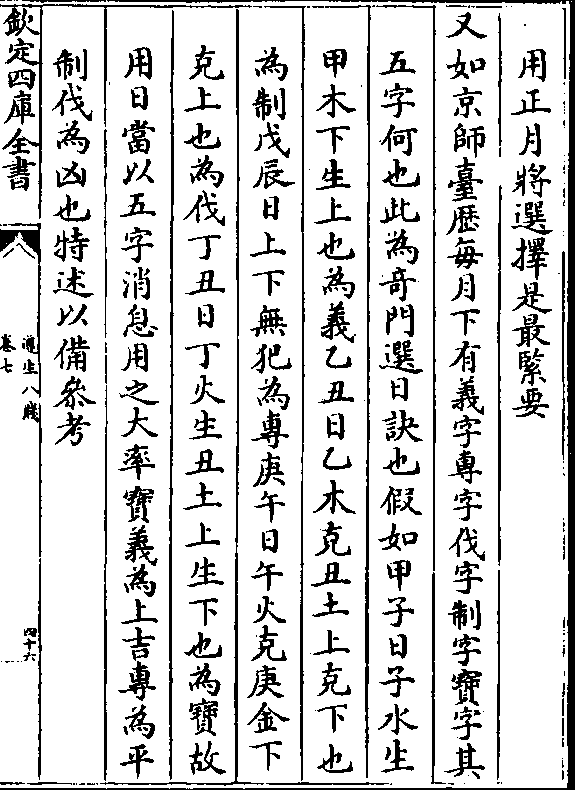 用正月將選擇是最緊要
又如京師臺歷每月下有義字專字伐字制字寶字其
五字何也此為奇門選日訣也假如甲子日子水生
甲木下生上也為義乙丑日乙木克丑土上克下也
為制戊辰日上下無犯為專庚午日午火克庚金下
克上也為伐丁丑日丁火生丑土上生下也為寶故
用日當以五字消息用之大率寶義為上吉專為平
制伐為凶也特述以備參考
欽定四庫全書
遵生八牋
卷七
四十六